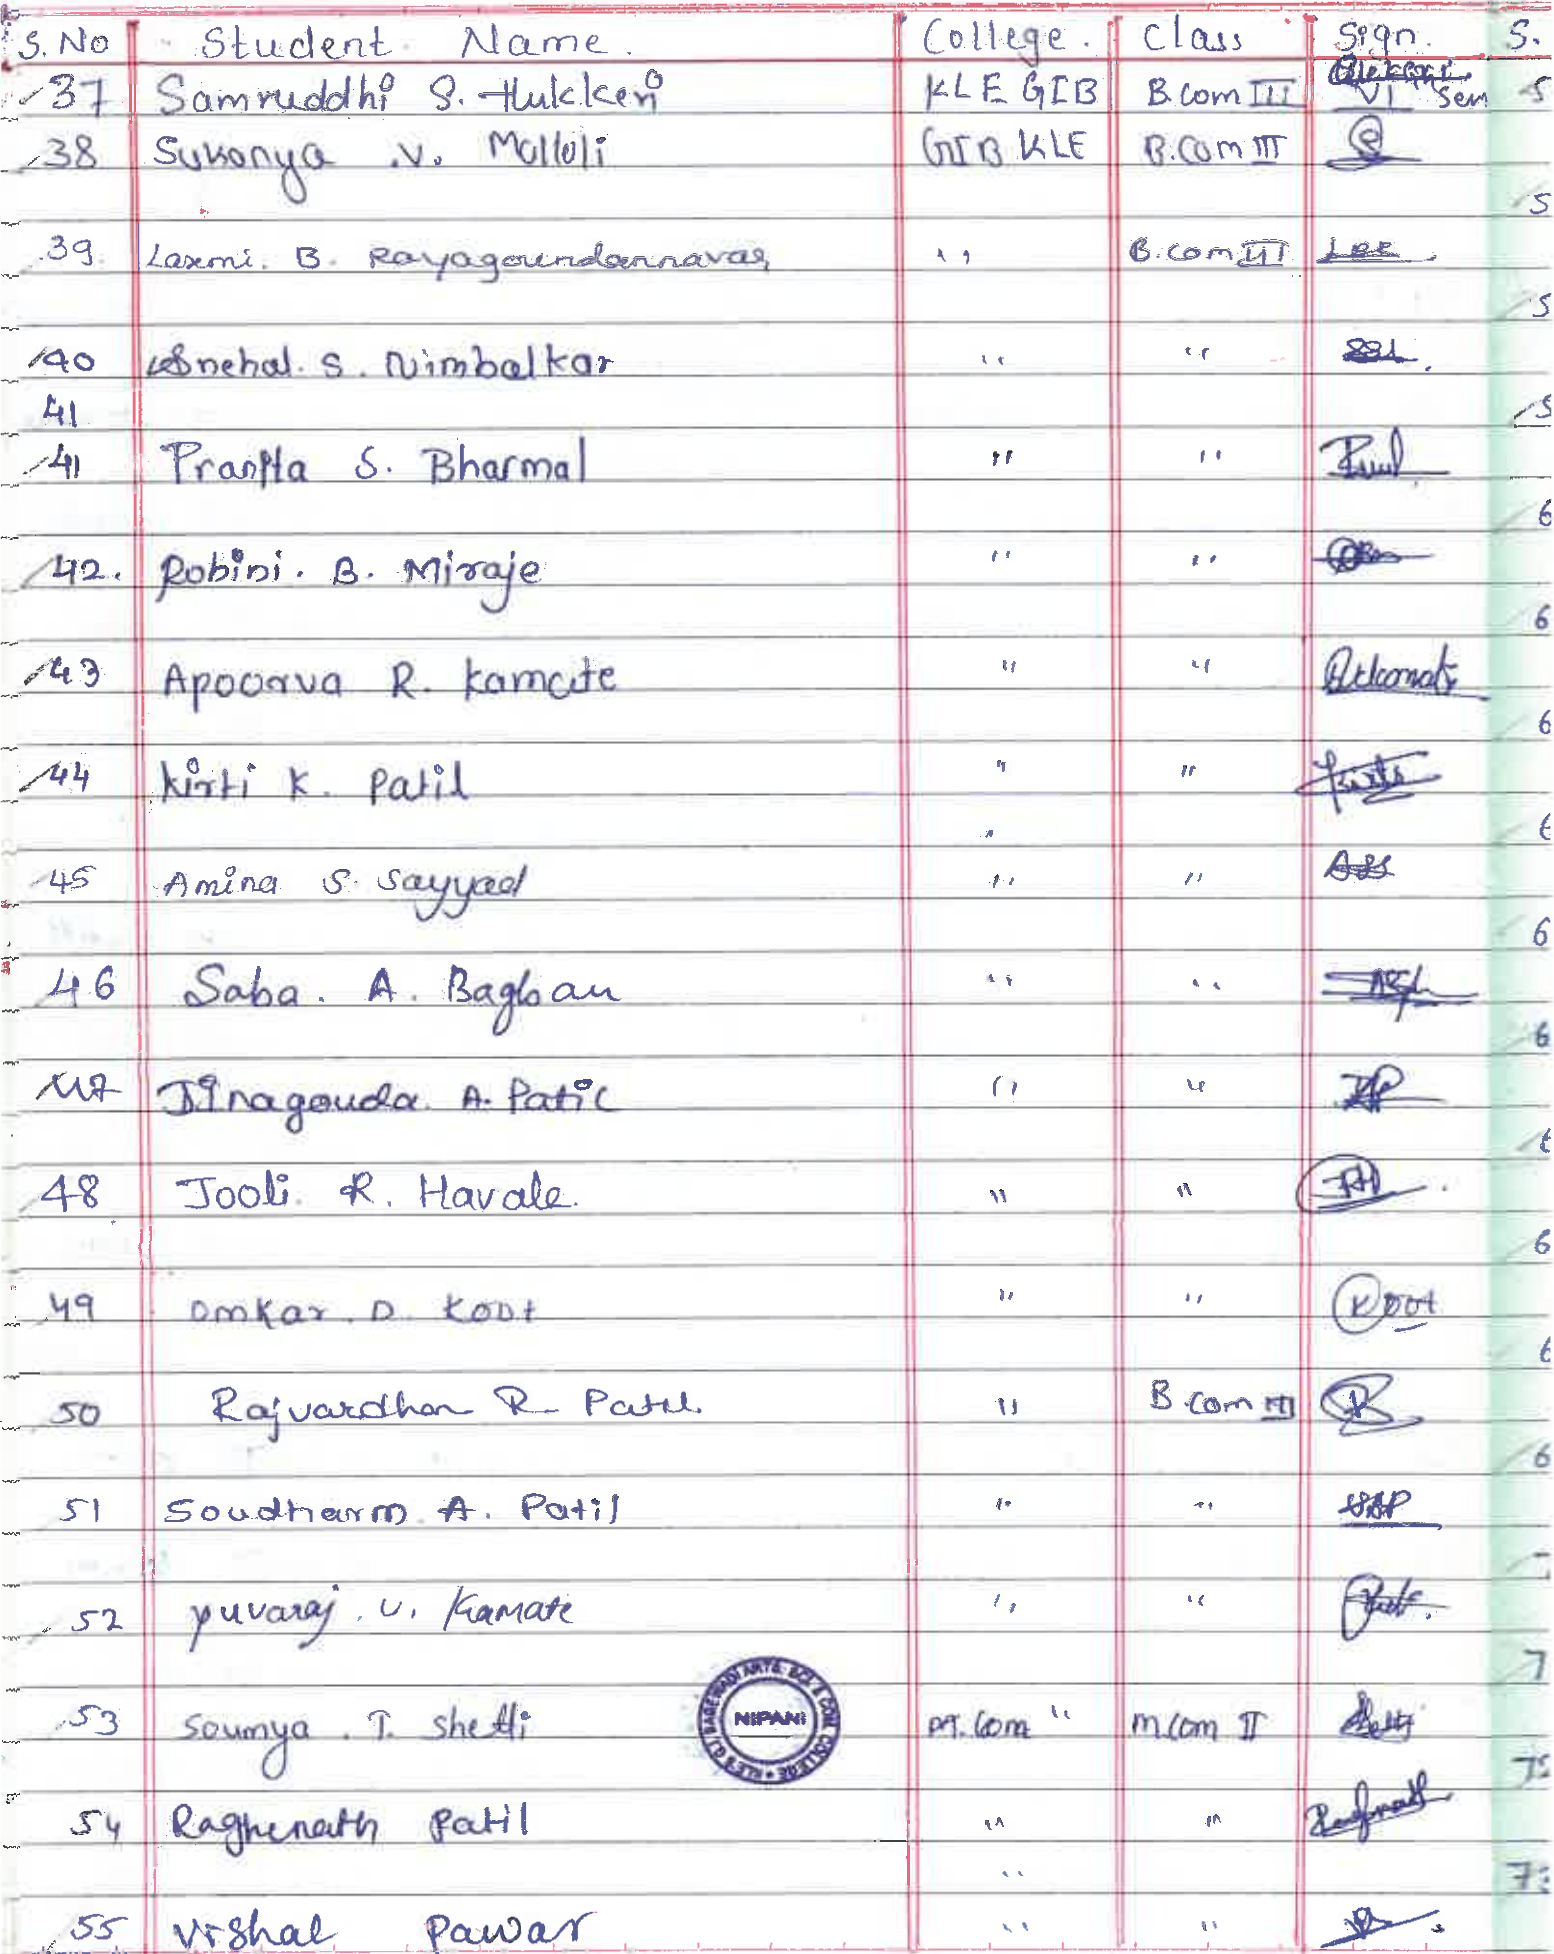 S. No Student Name. College. Class Sign. S.
37 Samruddhi S. Hukkeri KLE GIB B.com III VI Sem
38 Sukanya .V. Malloli GIB KLE B.Com III
39. Laxmi. B. Rayagoundannavar ,, B.com III
40 Snehal. S. Nimbalkar " "
41
41 Pranita S. Bharmal " "
42. Rohini. B. Miraje " "
43 Apoorva R. Kamate " "
44 Kirti K. Patil " "
"
45 Amina S. Sayyad " "
46 Saba. A. Bagban " "
47 Jinagouda. A. Patil " "
48 Jooli. R. Havale. " "
49 Omkar. D. Koot " " Koot
50 Rajvardhan R. Patil. " B.com III
51 Soudharm A. Patil " "
52 Yuvaraj. U. Kamate " "
53 Soumya. T. Shetti M.Com " M.Com II
NIPANI
54 Raghunath Patil " "
"
55 Vishal Pawar " "